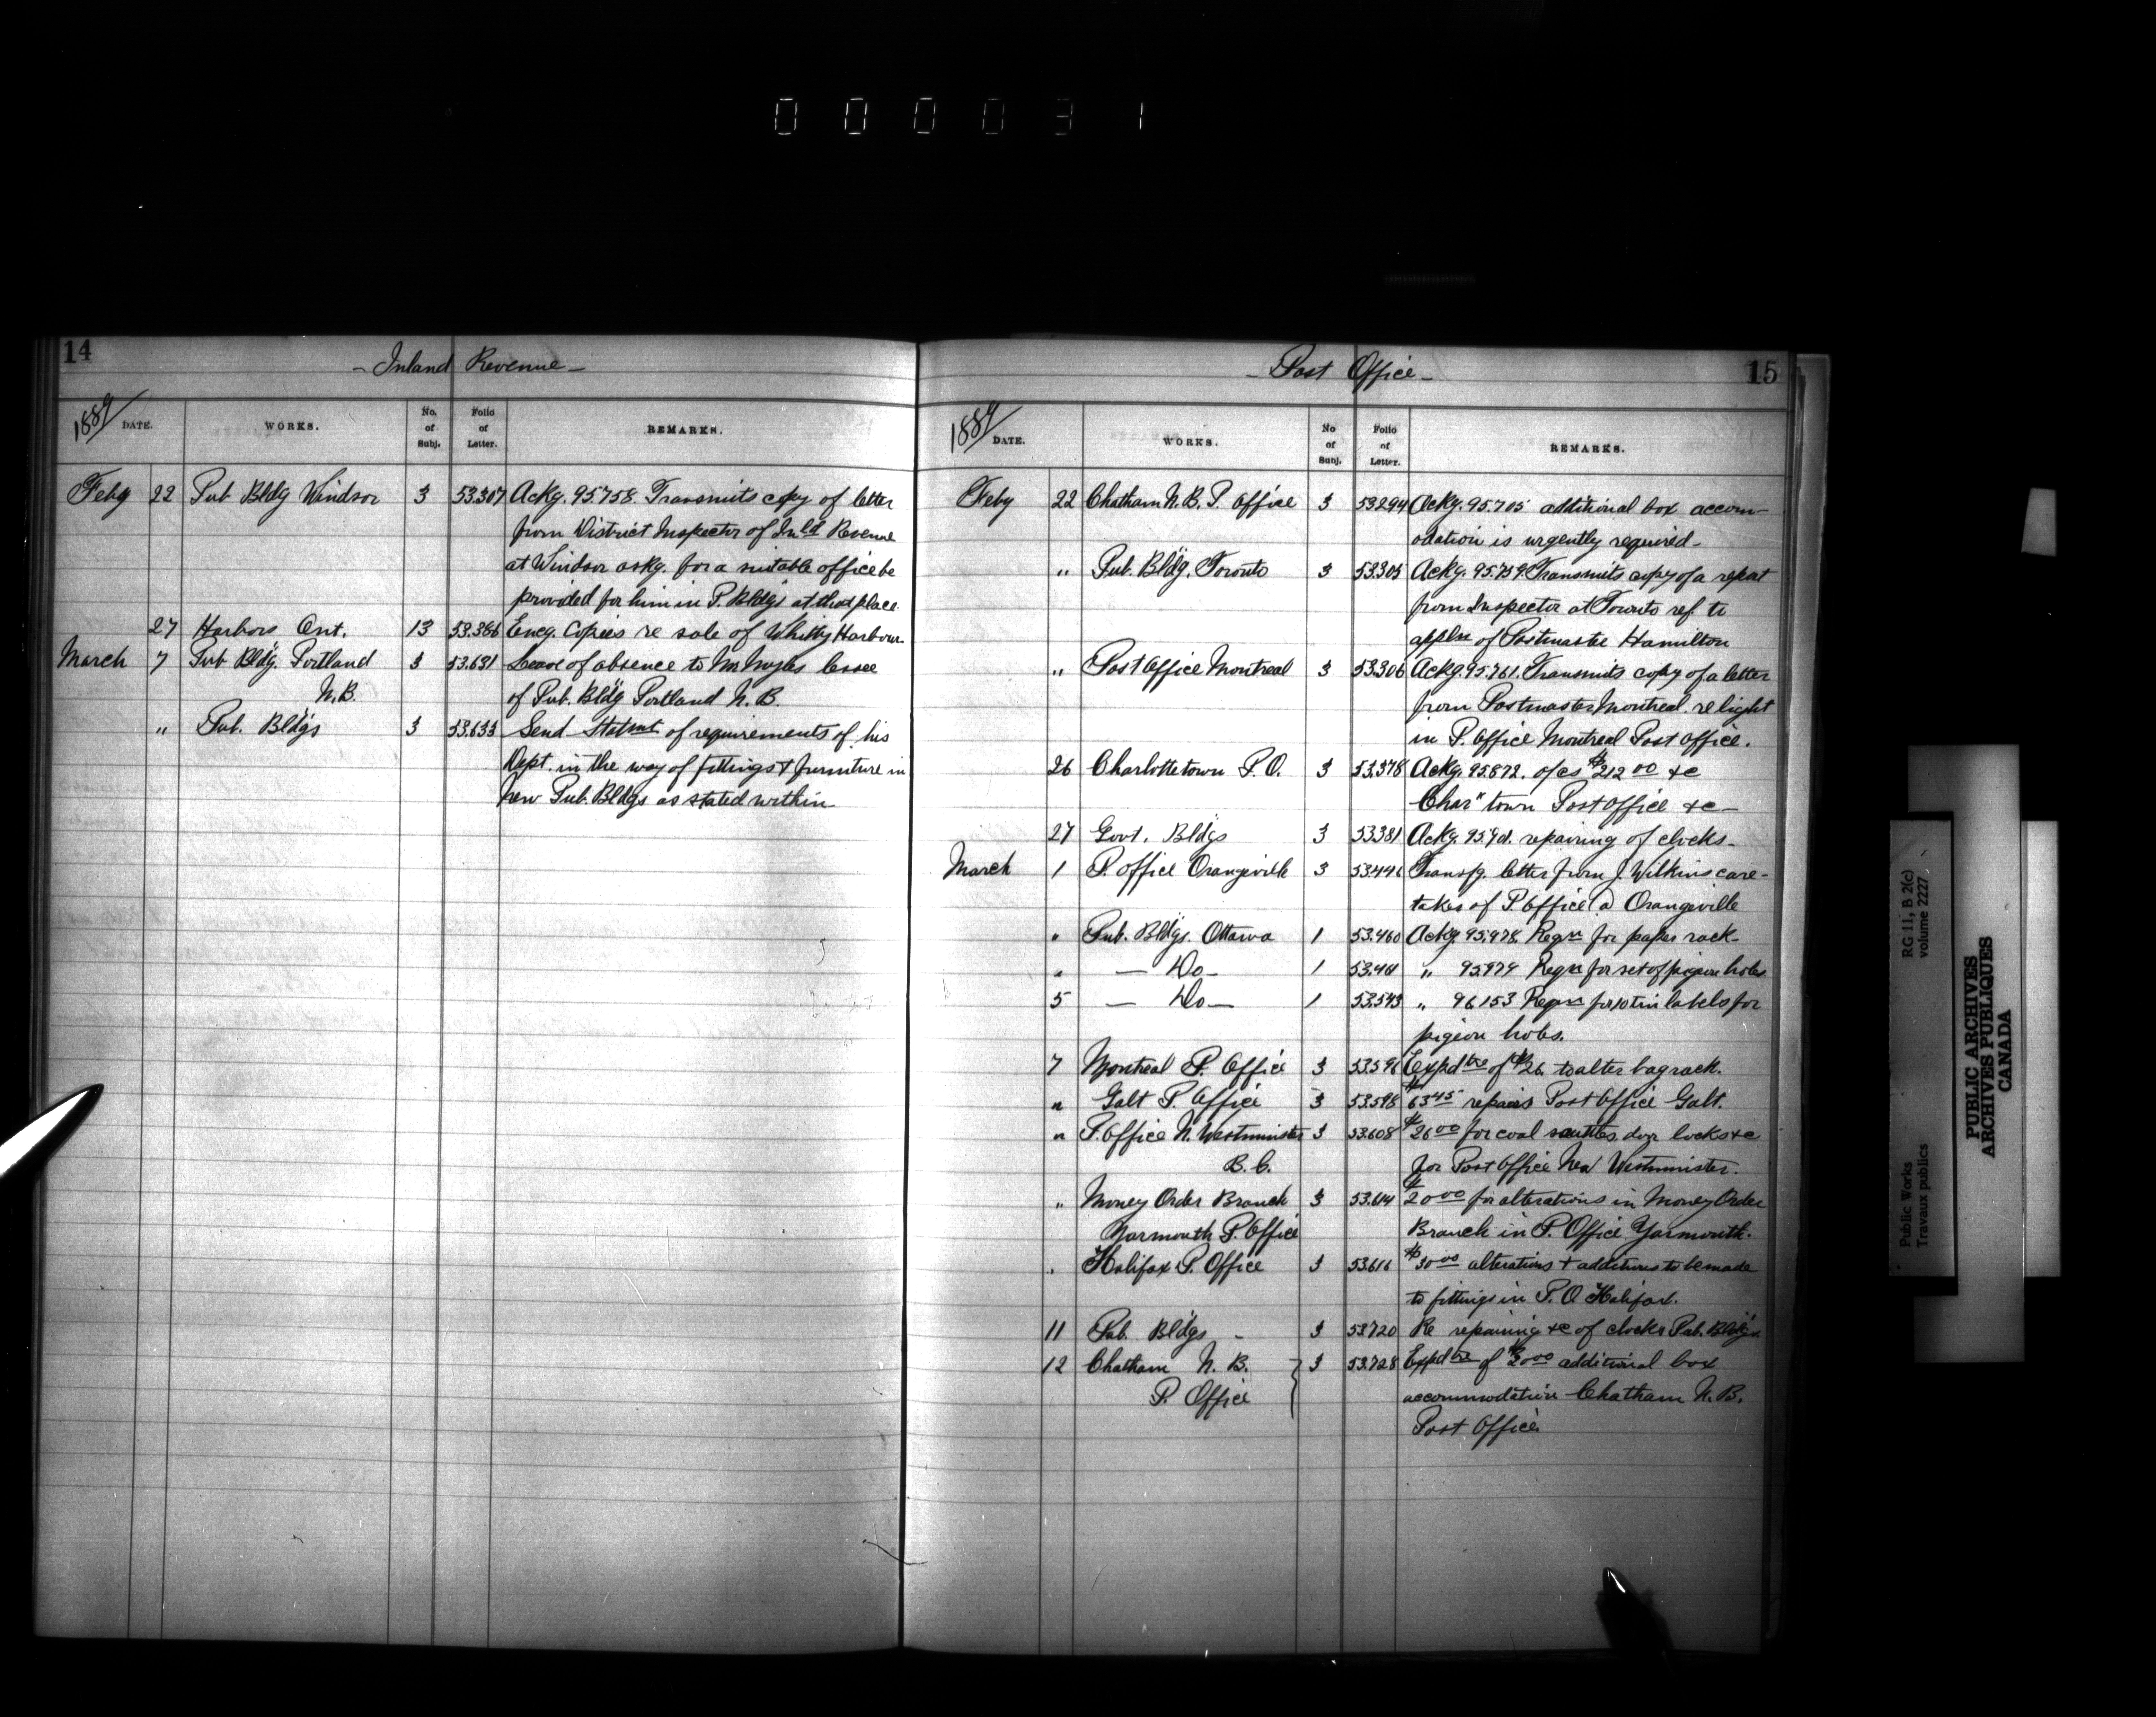 000031
14
- Inland Revenue -
1889 DATE. WORKS. No. of Subj. Folio of Letter. REMARKS.
Feby 22 Pub Bldg Windsor 3 53307 Ackg. 95758. Transmits copy of letter
from District Inspector of Inld Revenue
at Windsor askg. for a suitable office be
provided for him in P. Bldgs at that place
27 Harbors Ont. 13 53.386 Encg. Copies re sale of Whitby Harbour.
March 7 Pub Bldg. Portland 3 53.631 Lease of absence to Mr lessee
N.B. of Pub. Bldg Portland N.B.
" Pub. Bldgs 3 53.633 Send Statmt of requirements of his
Dept. in the way of fittings & furniture in
New Pub. Bldgs as stated within
15
- Post Office -
1889 DATE. WORKS. No of Subj. Folio of Letter. REMARKS.
Feby 22 Chatham N.B. P. Office 3 53294 Ackg. 95.705 additional box accom-
odation is urgently required -
" Pub. Bldg. Toronto 3 53.305 Ackg. 95.759. Transmits copy of a report
from Inspector at Toronto ref to
appln of Postmaster Hamilton
" Post Office Montreal 3 53306 Ackg. 95.761. Transmits copy of a letter
from Postmaster Montreal. re light
in P. Office Montreal Post Office.
26 Charlottetown P.O. 3 53.378 Ackg. 95.872. of cs $212 00 &c
Char" town Post Office &c -
27 Govt. Bldgs 3 53381 Ackg. repairing of clocks -
March 1 P. Office Orangeville 3 53446 Transfg. letter from J. Wilkins care-
taker of P. Office @ Orangeville
" Pub. Bldgs. Ottawa 1 53.460 Ackg. 95.978. Reqn for paper rack -
" — Do — 1 53.461 " 95979 Reqn for set of pigeon holes
5 — Do — 1 53.543 " 96153 Reqn for 10 tin labels for
pigeon holes.
7 Montreal P. Office 3 53.596 Expdtre of $26. to alter bag rack.
" Galt P. Office 3 53.598 $63 45 repairs Post Office Galt.
" P. Office N. Westminster 3 53.608 $26 00 for coal scuttles, door locks &c
B.C. for Post Office New Westminister.
" Money Order Branch 3 53.614 $20 00 for alterations in Money Order
Yarmouth P. Office Branch in P. Office Yarmouth.
" Halifax P. Office 3 53.616 $30 00 alterations & additions to be made
to fittings in P.O. Halifax.
11 Pub. Bldgs - 3 53720 Re repairing &c of clocks Pub. Bldgs.
12 Chatham N.B. 3 53.728 Expdtre of $20 00 additional box
P. Office accommodation Chatham N.B.
Post Office
Public Works RG 11, B 2(c)
Travaux publics volume 2227
PUBLIC ARCHIVES
ARCHIVES PUBLIQUES
CANADA